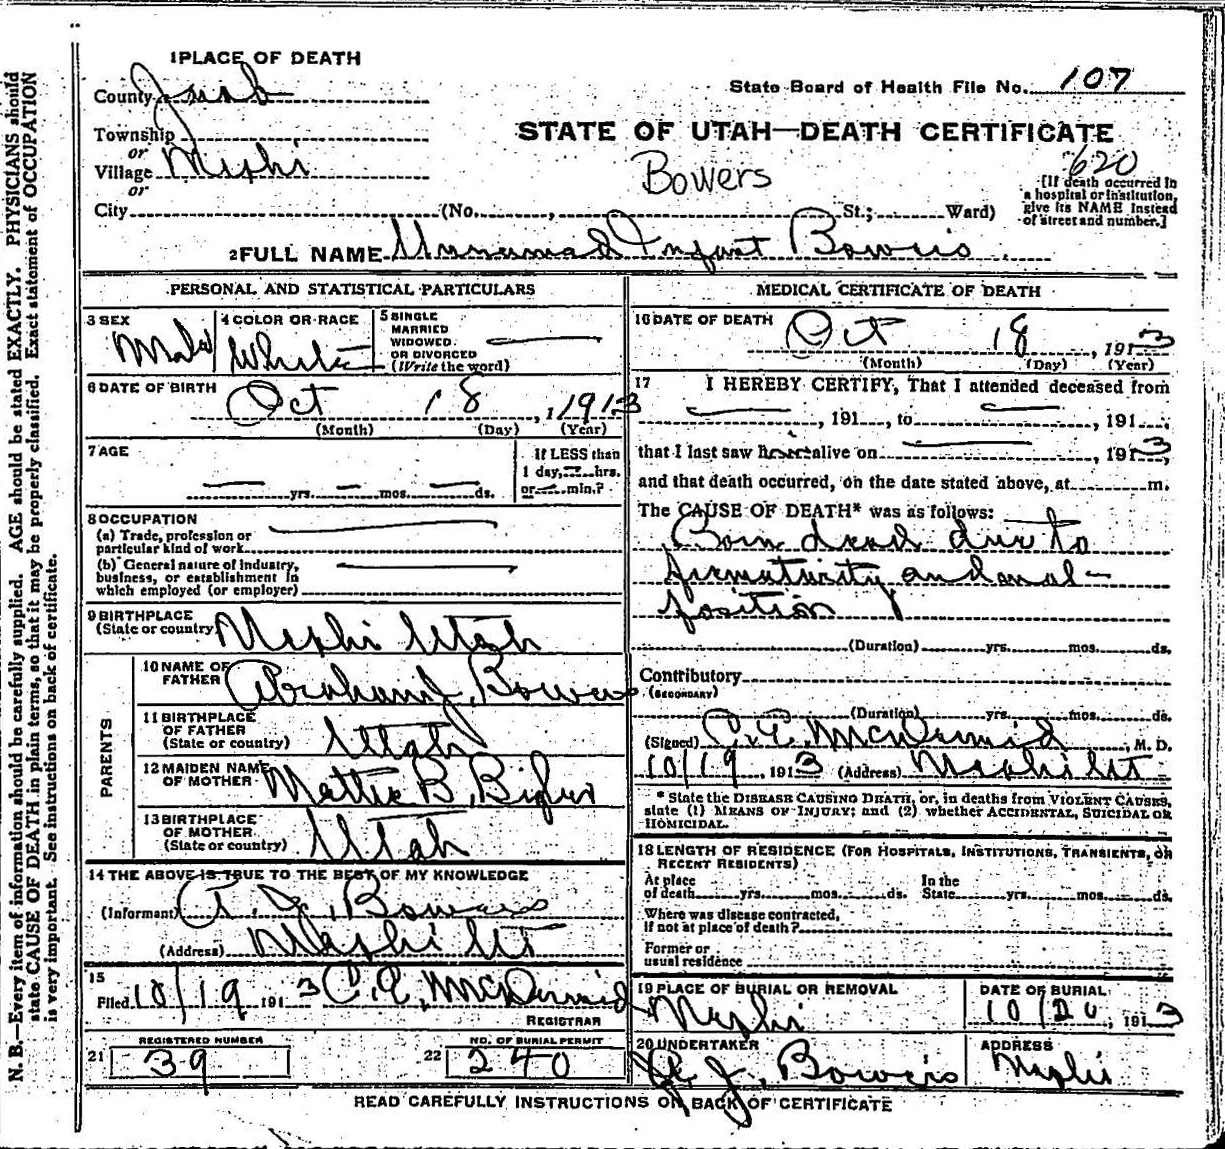 1 PLACE OF DEATH
County Juab
State Board of Health File No. 107
Township
or
Village Nephi
or
STATE OF UTAH—DEATH CERTIFICATE
Bowers
620
[If death occurred in
a hospital or institution,
give its NAME instead
of street and number.]
City (No. , St.; Ward)
2 FULL NAME Unnamed Infant Bowers
PERSONAL AND STATISTICAL PARTICULARS
3 SEX
Male
4 COLOR OR RACE
White
5 SINGLE
MARRIED
WIDOWED
OR DIVORCED
(Write the word)
6 DATE OF BIRTH
Oct 18, 1913
(Month) (Day) (Year)
7 AGE
yrs. mos. ds.
If LESS than
1 day, hrs.
or min.?
8 OCCUPATION
(a) Trade, profession or
particular kind of work
(b) General nature of industry,
business, or establishment in
which employed (or employer)
9 BIRTHPLACE
(State or country) Nephi Utah
PARENTS
10 NAME OF
FATHER Abraham J. Bowers
11 BIRTHPLACE
OF FATHER
(State or country) Utah
12 MAIDEN NAME
OF MOTHER Mattie B.
13 BIRTHPLACE
OF MOTHER
(State or country) Utah
14 THE ABOVE IS TRUE TO THE BEST OF MY KNOWLEDGE
(Informant) A. J. Bowers
(Address) Nephi Ut
15
Filed 10/19 1913 C. E. McDermid
REGISTRAR
REGISTERED NUMBER
21 39
NO. OF BURIAL PERMIT
22 240
MEDICAL CERTIFICATE OF DEATH
16 DATE OF DEATH
Oct 18, 1913
(Month) (Day) (Year)
17 I HEREBY CERTIFY, That I attended deceased from
, 191 , to , 191 ,
that I last saw h alive on , 1913,
and that death occurred, on the date stated above, at m.
The CAUSE OF DEATH* was as follows:
Born dead due to
prematurity and mal-
position
(Duration) yrs. mos. ds.
Contributory
(SECONDARY)
(Duration) yrs. mos. ds.
(Signed) C. E. McDermid, M. D.
10/19, 1913 (Address) Nephi Ut
* State the DISEASE CAUSING DEATH, or, in deaths from VIOLENT CAUSES,
state (1) MEANS OF INJURY; and (2) whether ACCIDENTAL, SUICIDAL OR
HOMICIDAL.
18 LENGTH OF RESIDENCE (FOR HOSPITALS, INSTITUTIONS, TRANSIENTS, OR
RECENT RESIDENTS)
At place
of death yrs. mos. ds.
In the
State yrs. mos. ds.
Where was disease contracted,
If not at place of death?
Former or
usual residence
19 PLACE OF BURIAL OR REMOVAL
Nephi
DATE OF BURIAL
10/20, 1913
20 UNDERTAKER
A. J. Bowers
ADDRESS
Nephi
READ CAREFULLY INSTRUCTIONS ON BACK OF CERTIFICATE
N. B.—Every item of information should be carefully supplied. AGE should be stated EXACTLY. PHYSICIANS should
state CAUSE OF DEATH in plain terms, so that it may be properly classified. Exact statement of OCCUPATION
is very important. See instructions on back of certificate.